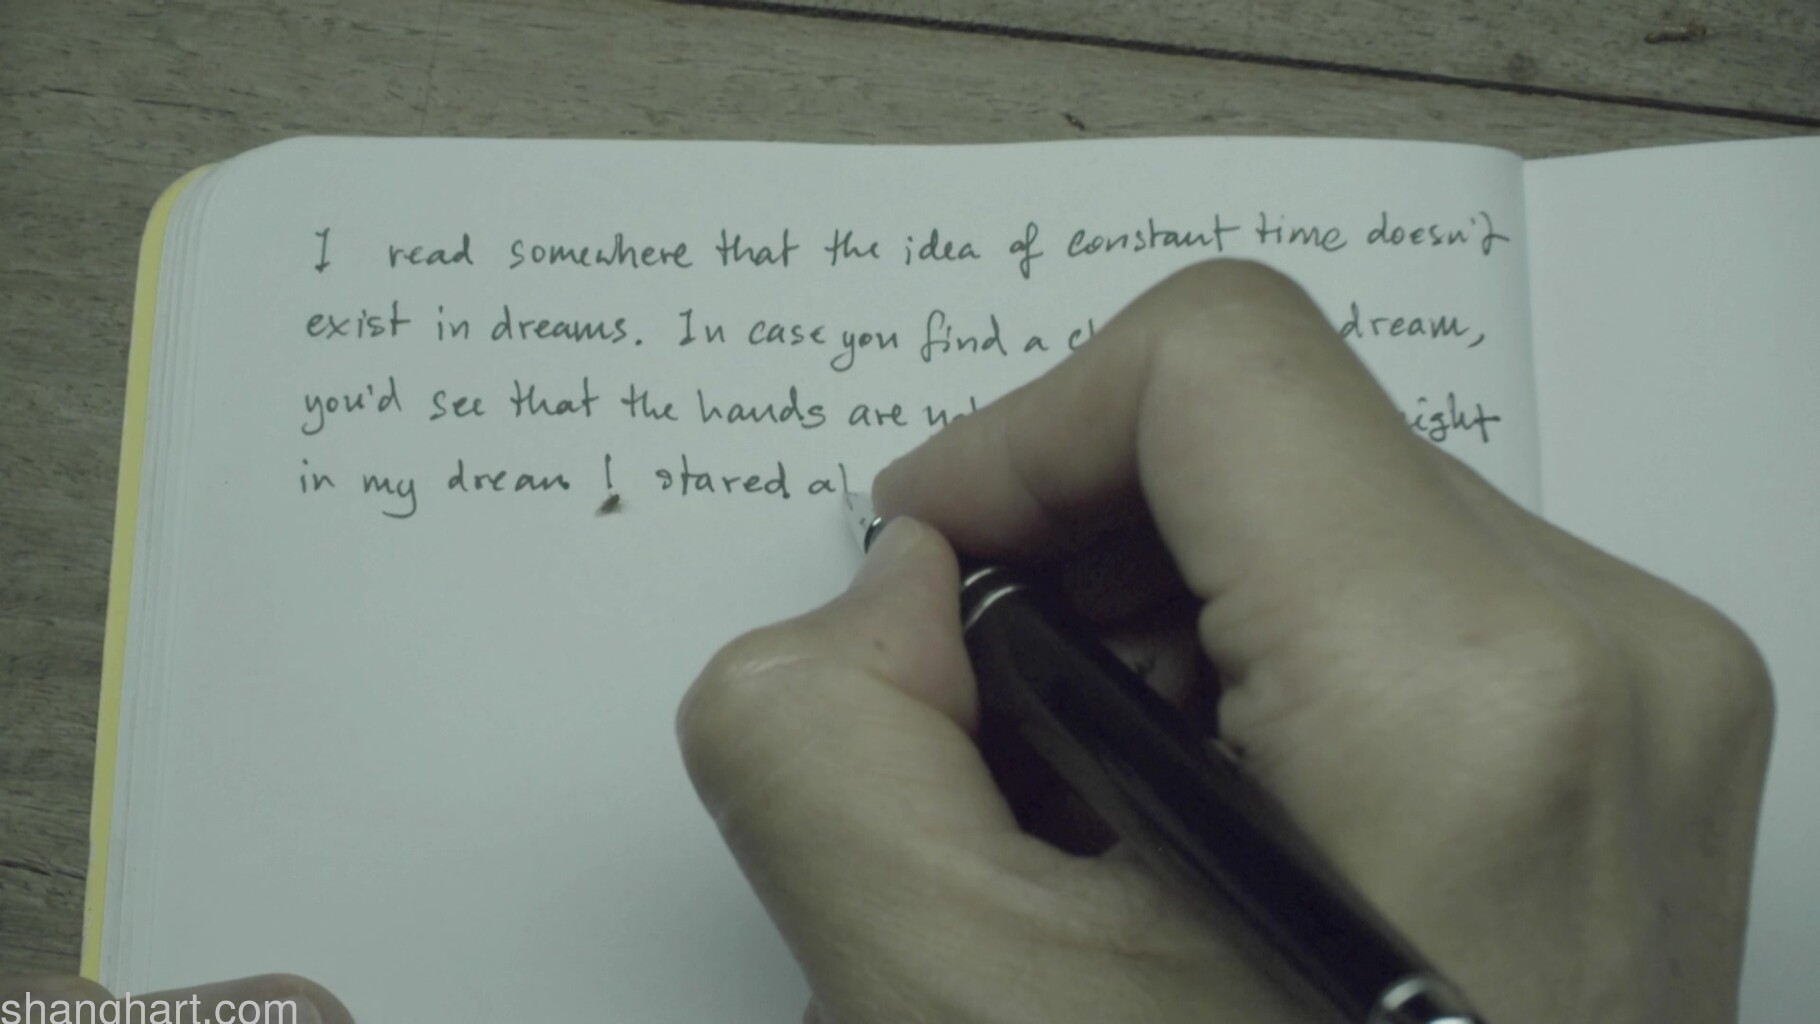 I read somewhere that the idea of constant time doesn't
exist in dreams. In case you find a dream,
you'd see that the hands are
in my dream I stared
shanghart.com